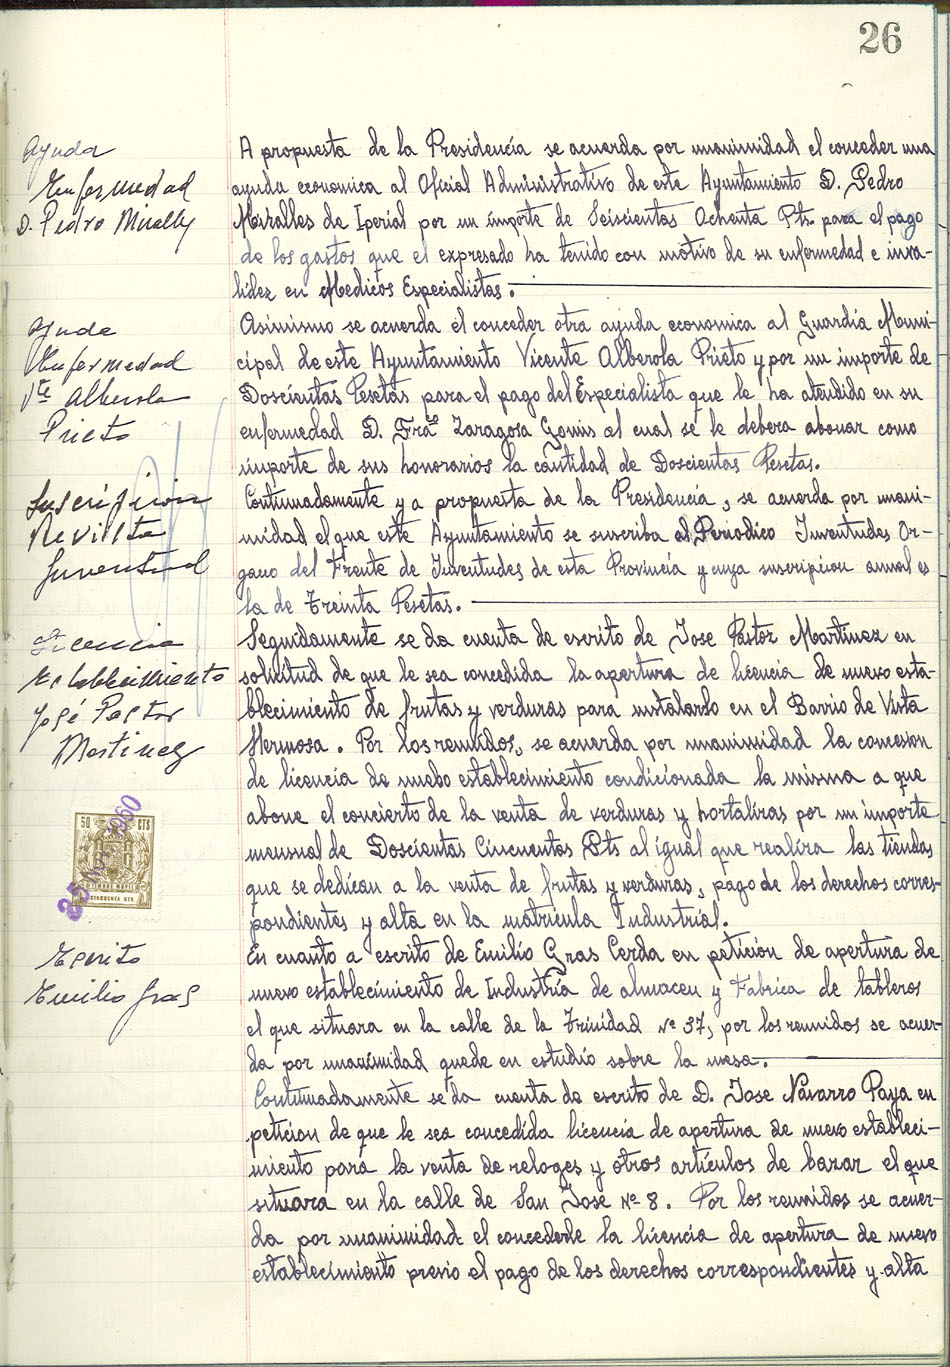 26
Ayuda
Enfermedad
D. Pedro Miralles
A propuesta de la Presidencia se acuerda por unanimidad el conceder una
ayuda economica al Oficial Administrativo de este Ayuntamiento D. Pedro
Miralles de Iperial por un importe de Seiscientas Ochenta Pts para el pago
de los gastos que el expresado ha tenido con motivo de su enfermedad e inva-
lidez en Medicos Especialistas.
Ayuda
Enfermedad
Vte Alberola
Prieto
Asimismo se acuerda el conceder otra ayuda economica al Guardia Muni-
cipal de este Ayuntamiento Vicente Alberola Prieto y por un importe de
Doscientas Pesetas para el pago del Especialista que le ha atendido en su
enfermedad D. Fraco Zaragosa Gomis al cual se le debera abonar como
importe de sus honorarios la cantidad de Doscientas Pesetas.
Suscripción
Revista
Juventud
Continuadamente y a propuesta de la Presidencia, se acuerda por unani-
midad el que este Ayuntamiento se suscriba al Periodico Juventudes Or-
gano del Frente de Juventudes de esta Provincia y cuya suscripcion annal es
la de Treinta Pesetas.
Licencia
Establecimiento
José Pastor
Martinez
Seguidamente se da cuenta de escrito de Jose Pastor Martinez en
solicitud de que le sea concedida la apertura de licencia de nuevo esta-
blecimiento de frutas y verduras para instalarlo en el Barrio de Vista
Hermosa. Por los reunidos, se acuerda por unanimidad la concesion
de licencia de nuebo establecimiento condicionada la misma a que
abone el concierto de la venta de verduras y hortalizas por un importe
mensual de Doscientas Cincuentas Pts al igual que realiza las tiendas
que se dedican a la venta de frutas y verduras, pago de los derechos corres-
pondientes y alta en la matricula Industrial.
50 CTS
TIMBRE MOVIL
CINCUENTA CTS
25 1960
Escrito
Emilio Gras
En cuanto a escrito de Emilio Gras Cerda en peticion de apertura de
nuevo establecimiento de Industria de almacen y Fabrica de tableros
el que situara en la calle de la Trinidad Nº 37, por los reunidos se acuer-
da por unanimidad quede en estudio sobre la mesa.
Continuadamente se da cuenta de escrito de D. Jose Navarro Paya en
peticion de que le sea concedida licencia de apertura de nuevo estableci-
miento para la venta de reloges y otros articulos de bazar el que
situara en la calle de San Jose Nº 8. Por los reunidos se acuer-
da por unanimidad el concederle la licencia de apertura de nuevo
establecimiento previo el pago de los derechos correspondientes y alta